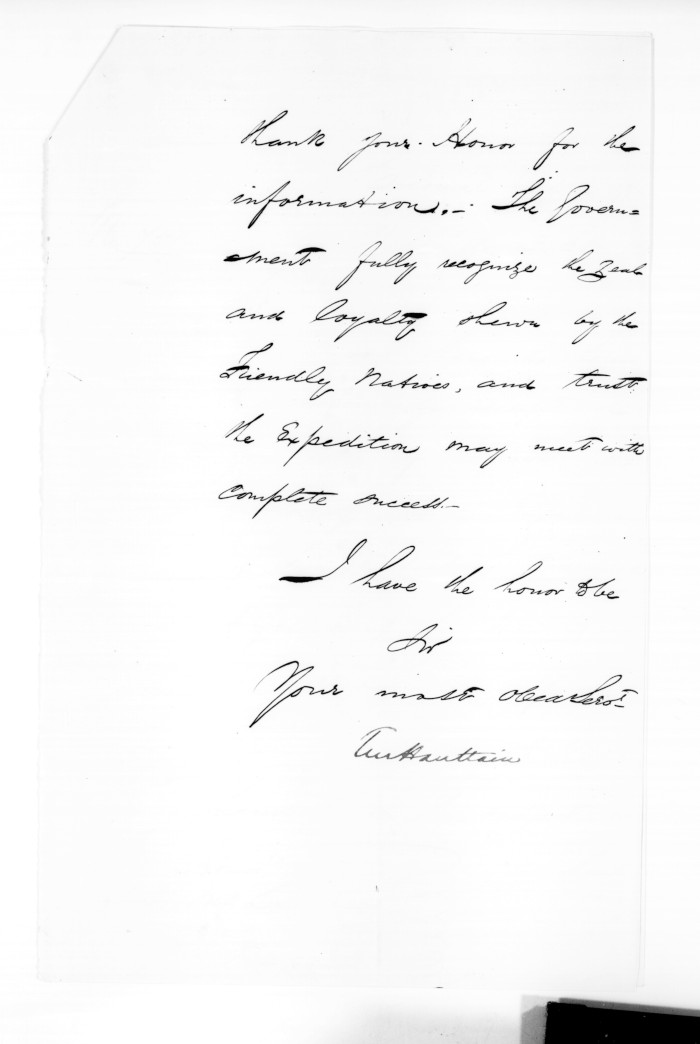 thank your Honor for the
information. — The Govern=
ment fully recognize the Zeal
and loyalty shewn by the
Friendly Natives, and trust
the Expedition may meet with
complete success —
I have the honor to be
Sir
Your most obed Servt
Haultain